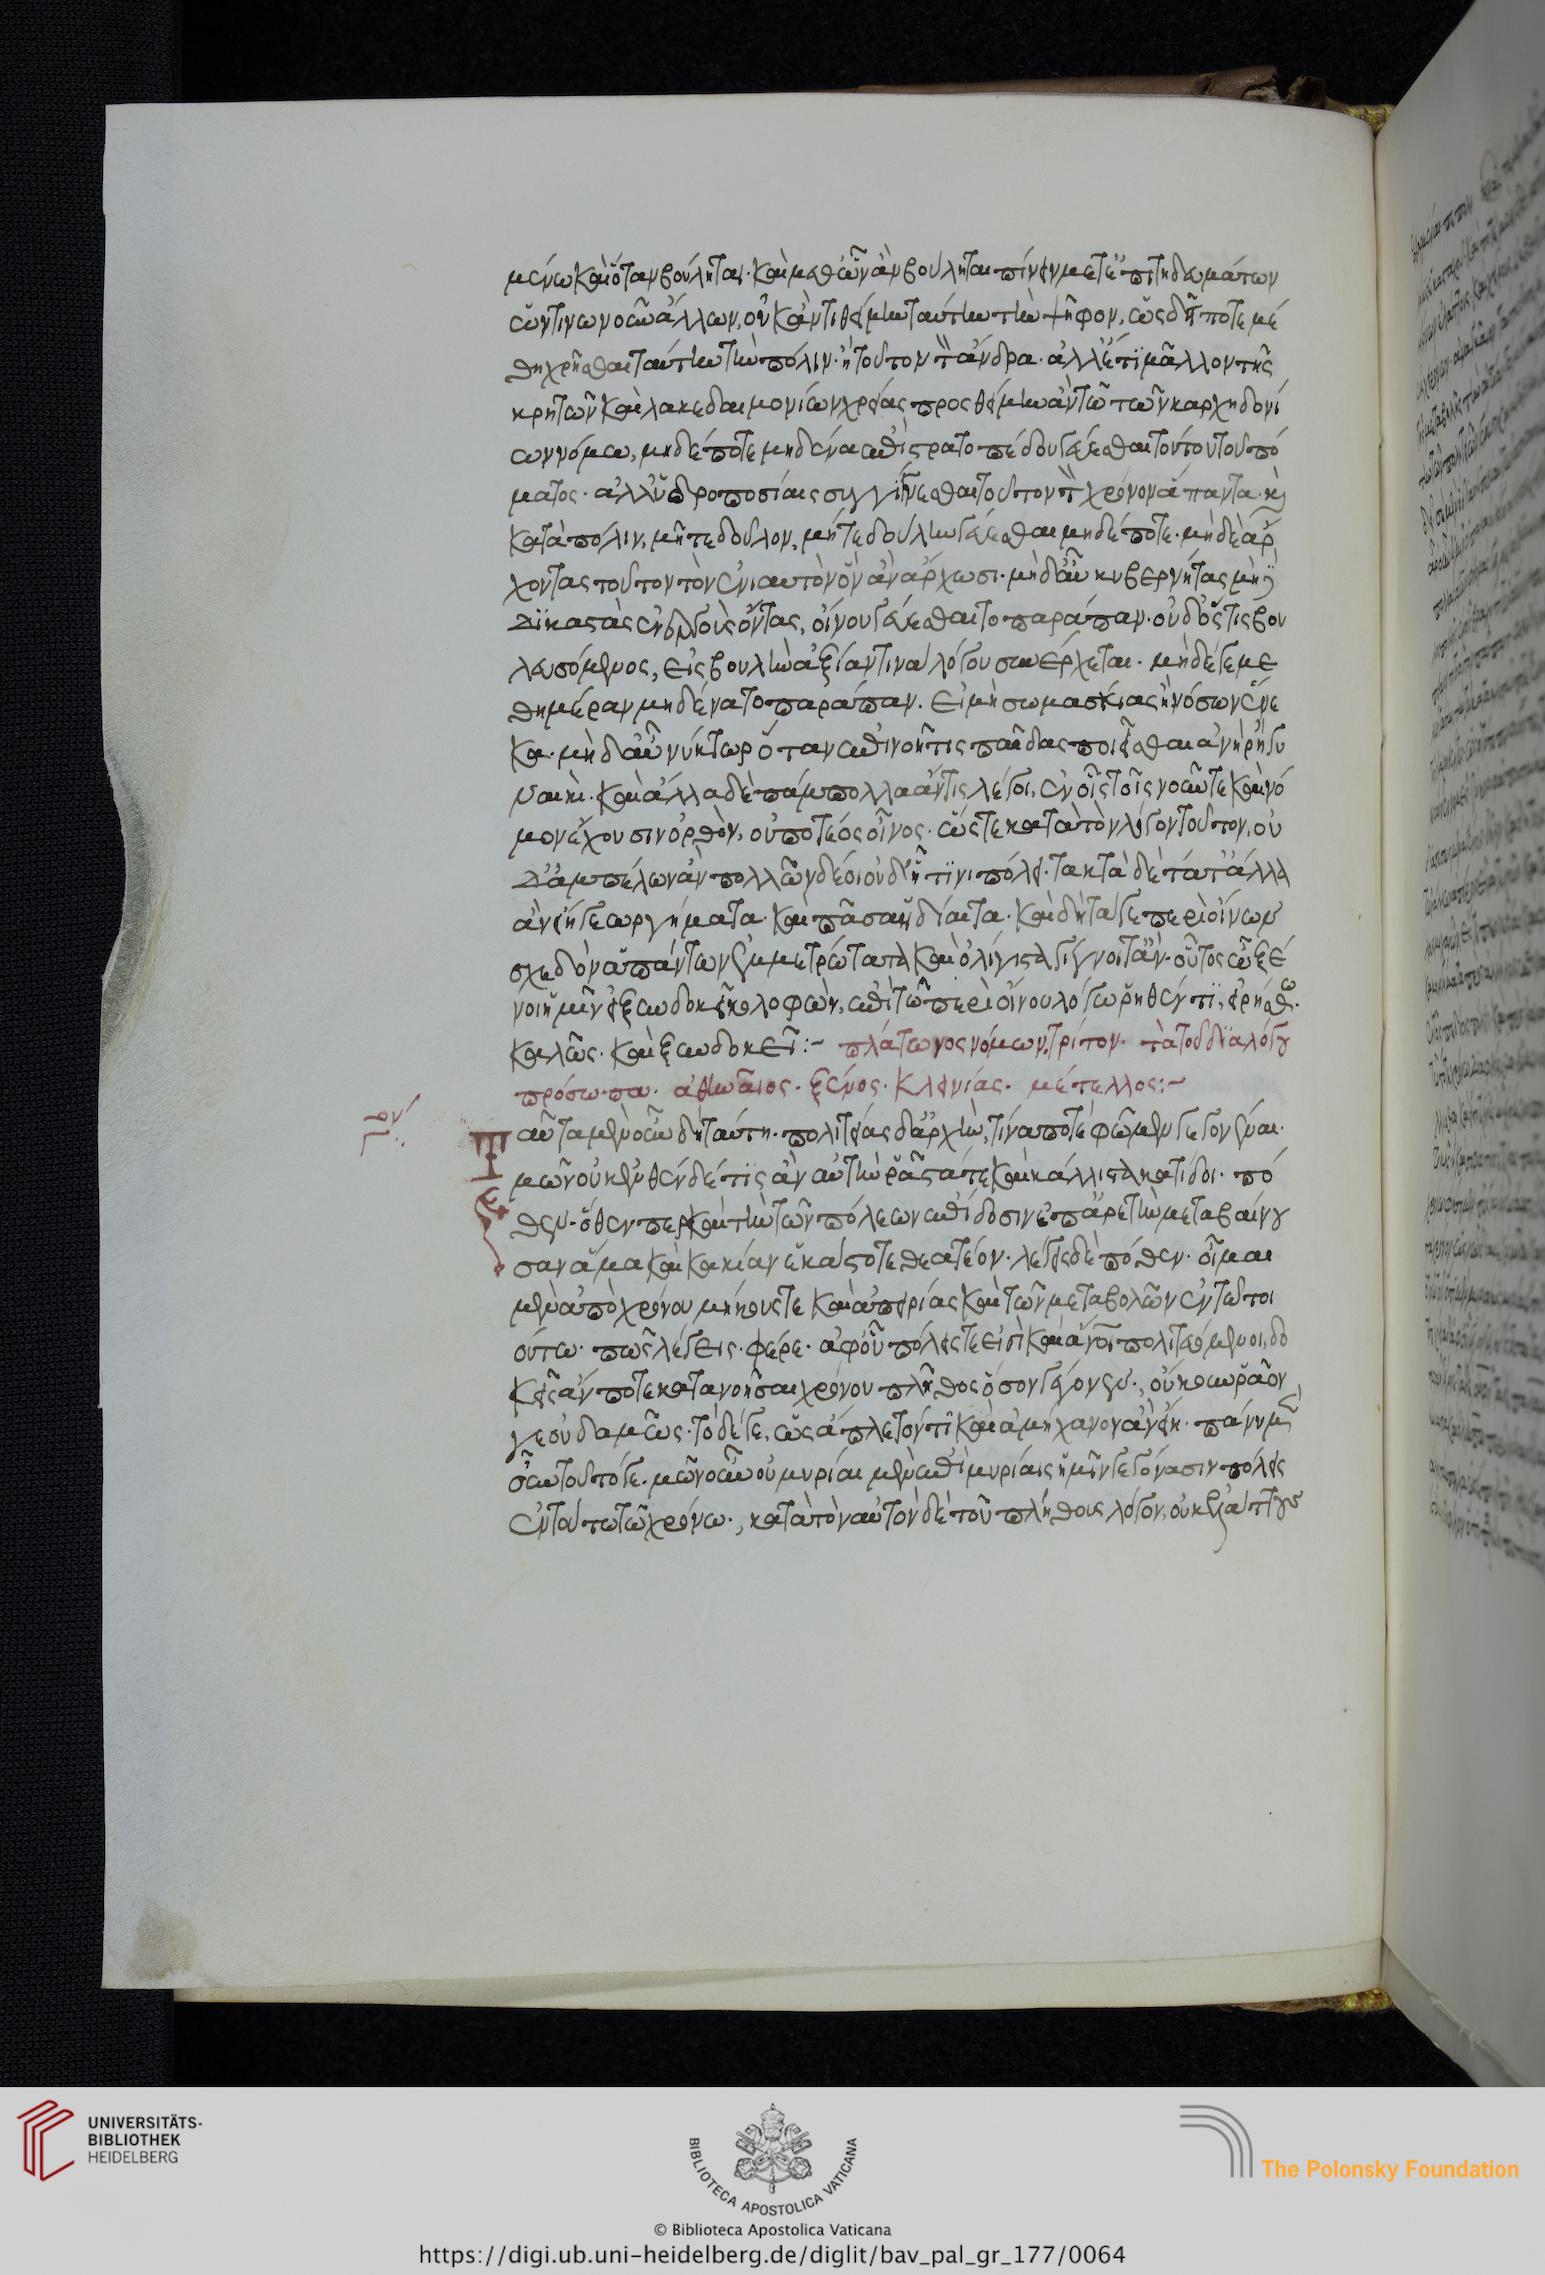 μένω καὶ ὅταν βούληται· καὶ μεθ' ὧν ἂν βούληται πίνειν μετ' ἐπιτηδευμάτων
ὧντινων οὖν ἄλλων, οὐκ ἂν τιθείμην ταύτην τὴν ψῆφον, ὥς δή ποτε μέ
θη χρῆσθαι ταύτην τὴν πόλιν· ἢ τοῦτον τὸν ἄνδρα· ἀλλ' ἔτι μᾶλλον τῆς
κρητῶν καὶ λακεδαιμονίων χρείας προσθείμην ἂν τῶ τῶν καρχηδονί
ων νόμω, μηδέποτε μηδένα ἐπὶ στρατοπέδου γεύεσθαι τούτου τοῦ πό
ματος· ἀλλ' ὑδροποσίαις συγγίγνεσθαι τοῦτον τὸν χρόνον ἅπαντα· καὶ
κατὰ πόλιν, μήτε δοῦλον, μήτε δούλην γεύεσθαι μηδέποτε· μηδὲ ἄρ
χοντας τοῦτον τὸν ἐνιαυτὸν ὃν ἂν ἄρχωσι· μηδ' αὖ κυβερνήτας μηδὲ
δικαστὰς ἐνεργοὺς ὄντας, οἴνου γεύεσθαι τοπαράπαν· οὐδ' ὅστις βου
λευσόμενος, εἰς βουλὴν ἀξίαν τινα λόγου συνέρχεται· μηδέ γε με
θημέραν μηδένα τοπαράπαν· εἰ μὴ σωμασκίας ἢ νόσων ἕνε
κα· μηδ' αὖ νύκτωρ ὅταν ἐπινοῆ τις παῖδας ποιεῖσθαι ἀνὴρ ἢ γυ
ναικὶ· καὶ ἄλλα δὲ πάμπολλα ἄν τις λέγοι, ἐν οἷς τοῖς νοῦν τε καὶ νό
μον ἔχουσιν ὀρθὸν, οὐ ποτέος οἶνος· ὥστε κατὰ τὸν λόγον τοῦτον, οὐ
δ' ἀμπέλων ἂν πολλῶν δέοι οὐδ' ᾗτινι πόλει· τακτὰ δὲ τά τ' ἄλλα
ἂν εἴη γεωργήματα· καὶ πᾶσα ἡ δίαιτα· καὶ δὴ τά γε περὶ οἶνον
σχεδὸν ἁπάντων ξυμμετρώτατα καὶ ὀλίγιστα γίγνοιτ' ἄν· οὗτος ὦ ξέ
νοι ἡμῖν εἰ ξυνδοκεῖ κολοφὼν, ἐπὶ τῶ περὶ οἴνου λόγω ῥηθέντι, εἰρήσθω.
καλῶς· καὶ ξυνδοκεῖ:~ πλάτωνος νόμων, τρίτον· τὰ τοῦ διαλόγου
πρόσωπα· ἀθηναῖος· ξένος· κλεινίας· μέτελλος:~
Ταῦτα μὲν οὖν δὴ ταύτη· πολιτείας δ' ἀρχὴν, τίνα ποτέ φῶμεν γεγονέναι·
μῶν οὐκ ἐνθένδέ τις ἂν αὐτὴν ῥᾶστά τε καὶ κάλλιστα κατίδοι· πό
θεν· ὅθεν περ καὶ τὴν τῶν πόλεων ἐπίδοσιν ἐπ' ἀρετὴν μεταβαίνου
σαν ἅμα καὶ κακίαν ἑκάστοτε θεατέον· λέγεις δὲ πόθεν· οἶμαι
μὲν ἀπὸ χρόνου μήκους τε καὶ ἀπειρίας καὶ τῶν μεταβολῶν ἐν τῶ τοι
ούτω· πῶς λέγεις· φέρε· ἀφ' οὗ πόλεις τε εἰσὶ καὶ ἄνοι πολιτευόμενοι, δο
κεῖς ἄν ποτε κατανοῆσαι χρόνου πλῆθος ὅσον γέγονεν·, οὔκουν ῥᾶον
γε οὐδαμῶς· τὸ δέ γε, ὡς ἄπλετόν τι καὶ ἀμήχανον ἂν εἴη· πάνυ μὲν
οὖν τοῦτό γε· μῶν οὖν οὐ μυρίαι μὲν ἐπὶ μυρίαις ἡμῖν γεγόνασιν πόλεις
ἐν τούτω τῶ χρόνω·, κατὰ τὸν αὐτὸν δὲ τοῦ πλήθους λόγον, οὐκ ἐλάττους
UNIVERSITÄTS-
BIBLIOTHEK
HEIDELBERG
BIBLIOTECA APOSTOLICA VATICANA
The Polonsky Foundation
© Biblioteca Apostolica Vaticana
https://digi.ub.uni-heidelberg.de/diglit/bav_pal_gr_177/0064